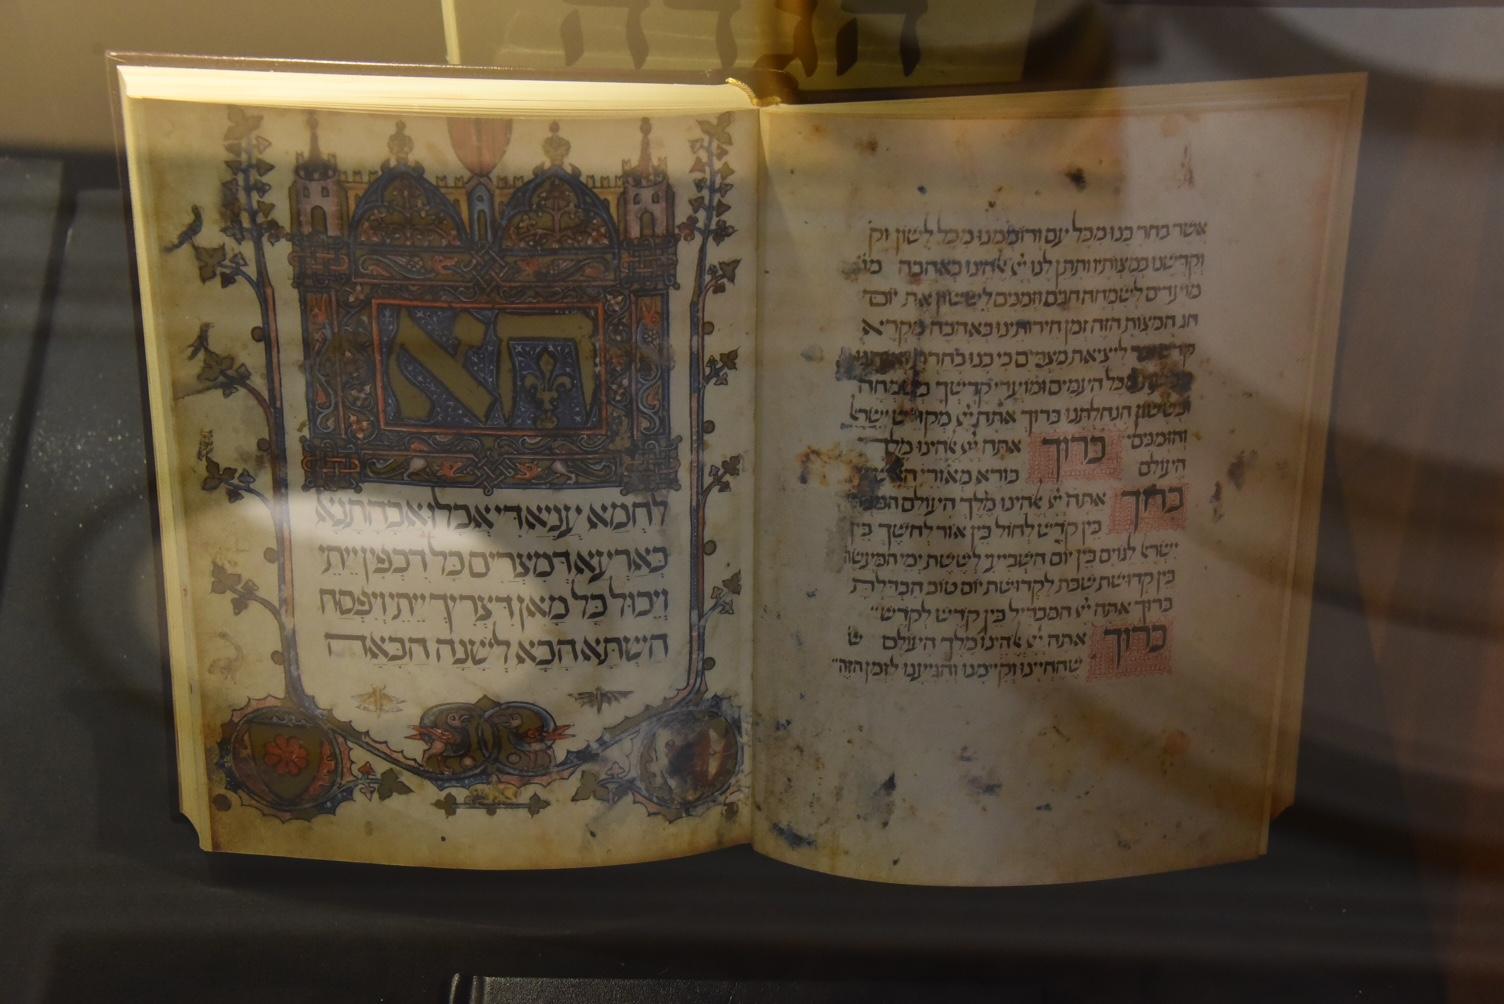 הגדה
אשר בחר בנו מכל עם ורוממנו מכל לשון וק
וקדשנו במצותיו ותתן לנו ייי אהינו באהבה מו
מועדים לשמחה חגים וזמנים לששון את יום
חג המצות הזה זמן חירותינו באהבה מקרא
קדש לייציאת מצרים כי בנו בחרת
מכל העמים ומועדי קדשך בשמחה
ובששון הנחלתנו ברוך אתה ייי מקדש ישרא
והזמנים ברוך אתה ייי אהינו מלך
העולם בורא מאורי האש
ברוך אתה ייי אהינו מלך העולם המב
בין קדש לחול בין אור לחשך בין
ישרא לגוים בין יום השביעי לששת ימי המעשה
בין קדושת שבת לקדושת יום טוב הבדלת
ברוך אתה ייי המבדיל בין קדש לקדש
ברוך אתה ייי אהינו מלך העולם ש
שהחיינו וקיימנו והגיענו לזמן הזה
הא
לחמא עניא די אכלו אבהתנא
בארעא דמצרים כל דכפין ייתי
ויכול כל מאן דצריך ייתי ויפסח
השתא הכא לשנה הבאה